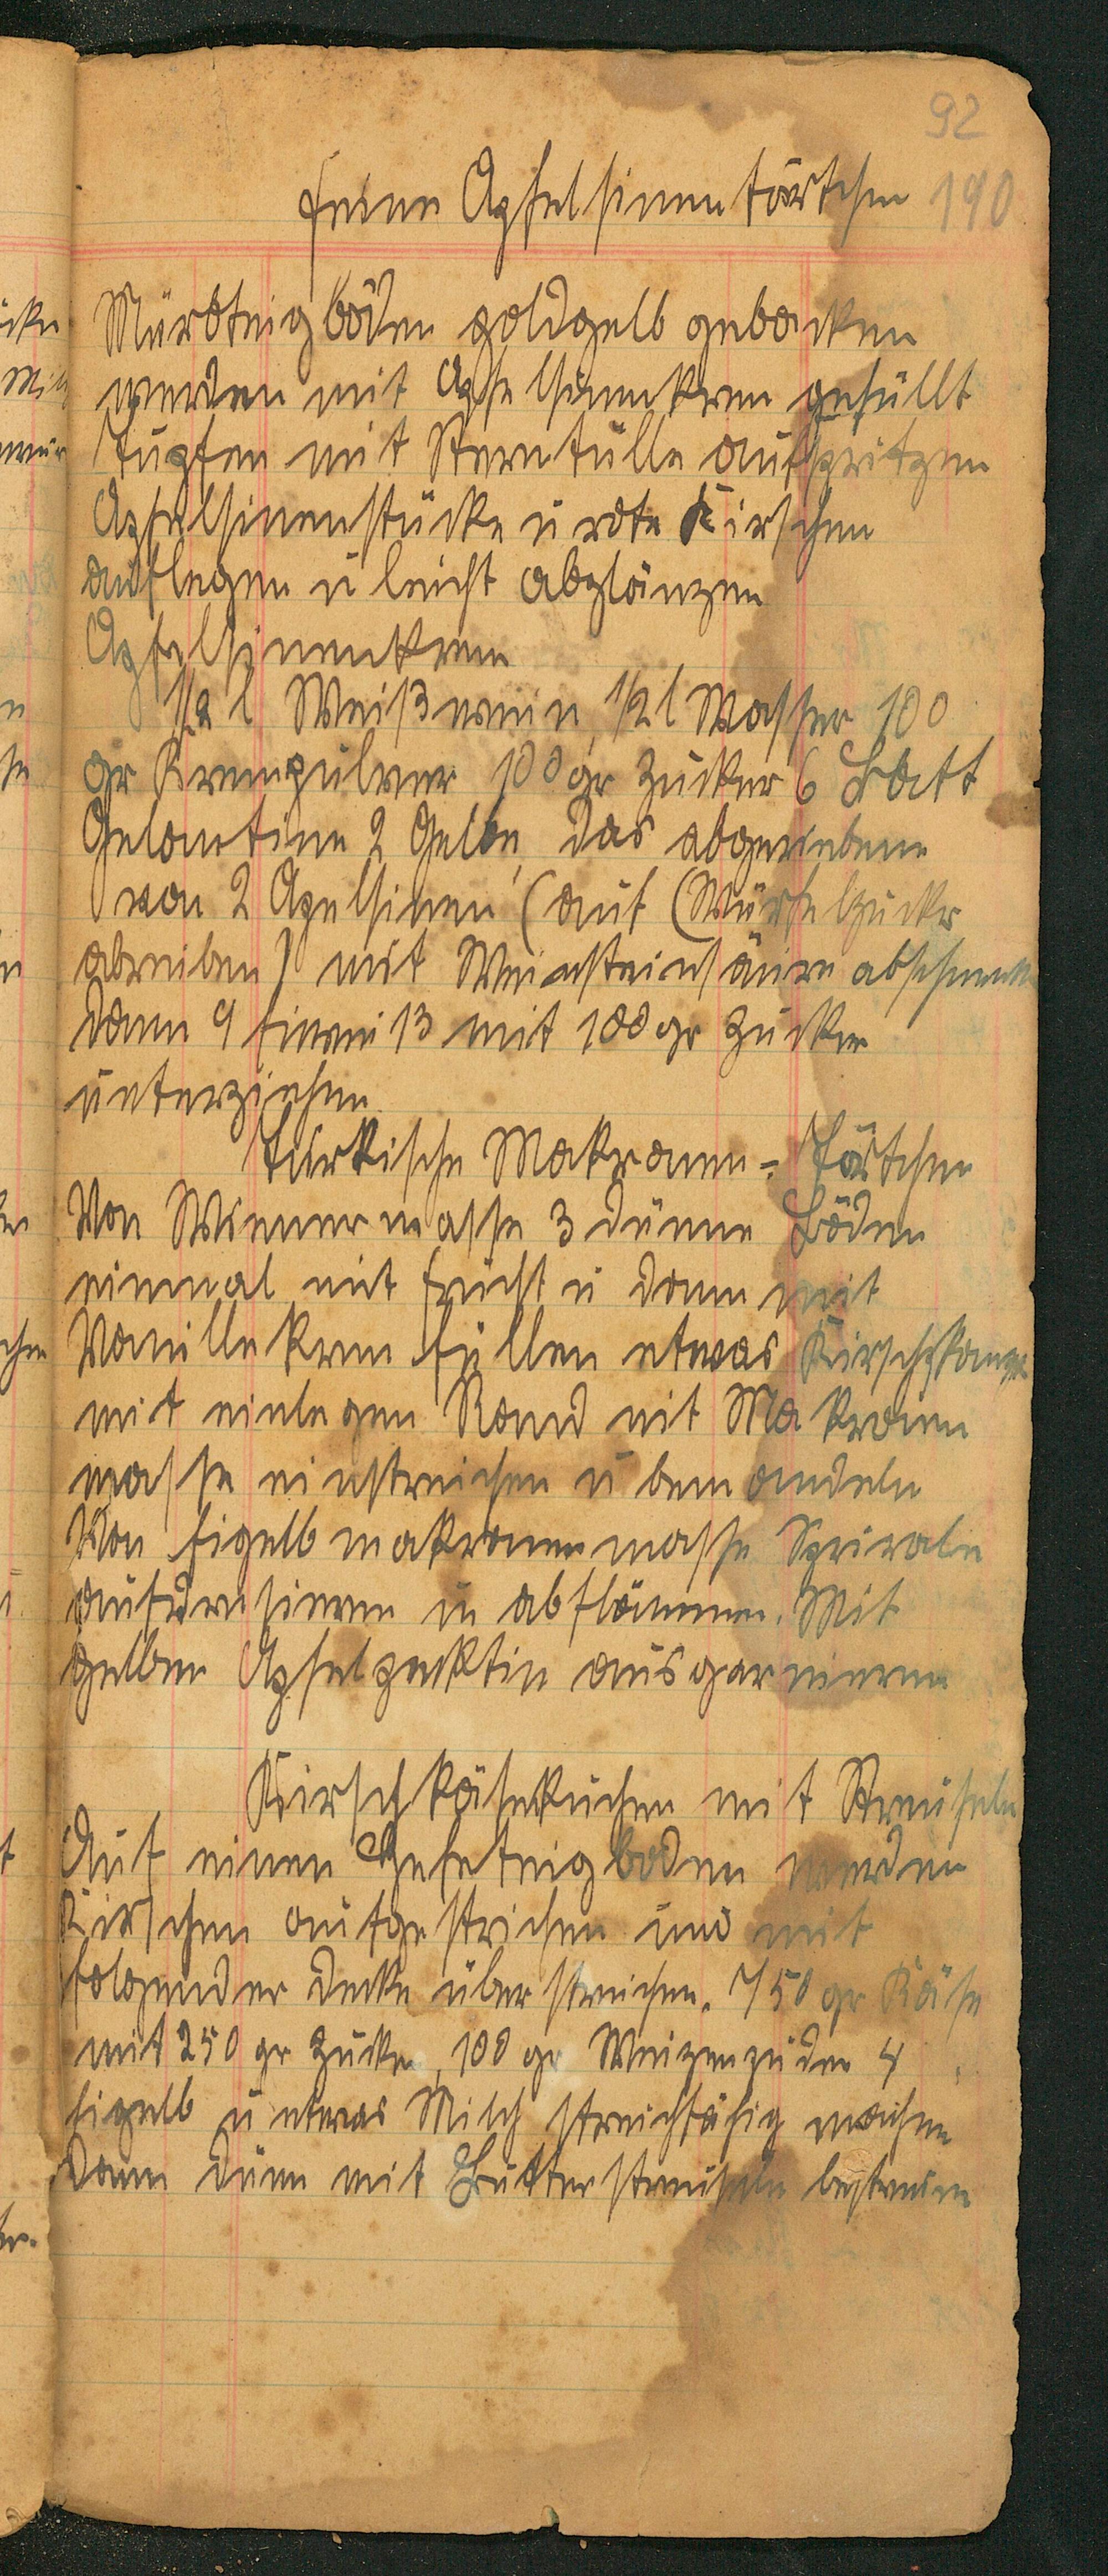 92
190
feine Apfelsinentörtchen
Mürbteigböden goldgelb gebacken
werden mit Apfelsinenkrem gefüllt
Tupfen mit Sterntülle aufspritzen
Apfelsinenstücke u rote Kirschen
auflegen u leicht abglänzen
Apfelsinenkrem
1/2 l Weißwein, 1/2 l Wasser 100
gr Krempulver 100 gr Zucker 6 Blatt
Gelantine 2 Gelbe, das abgeriebene
von 2 Apelsinen (auf (Würfelzucker
abreiben) mit Weinsteinsäure abschmeck
dann 9 Eiweiß mit 100 gr Zucker
unterziehen
Türkische Makronen-Törtchen
Von Wienermasse 3 dünne Böden
einmal mit Frucht u dann mit
Vanillekrem füllen etwas
mit einlegen Rand mit Makronen
masse einstreichen u bemandeln
Von Eigelbmakronenmasse Spirale
aufdresieren u abflämmen. Mit
gelben Apfelpecktin ausgarnieren
Kirschkäsekuchen mit Streuseln
Auf einen Hefeteigboden werden
Kirschen aufgestrichen und mit
folgender Decke überstreichen. 750 gr Käse
mit 250 gr Zucker, 100 gr Weizenpuder 4
Eigelb u etwas Milch streichfähig machen
dann dünn mit Butterstreuseln bestreuen